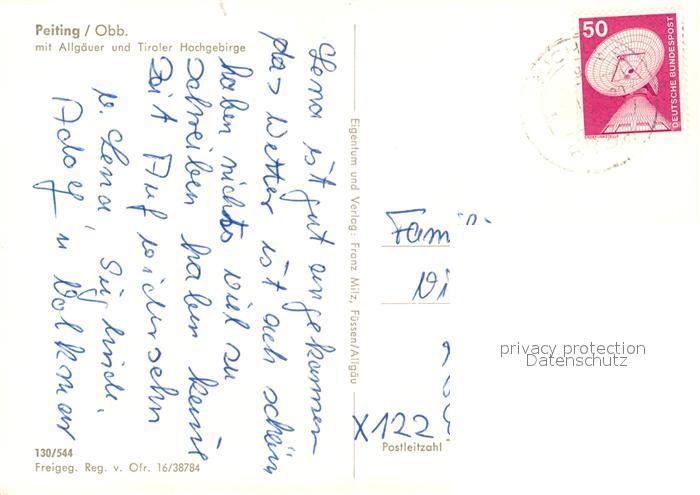 Peiting / Obb.
mit Allgäuer und Tiroler Hochgebirge
Lena ist gut angekommen
das Wetter ist auch schön
haben nichts viel zu
schreiben haben keine
Zeit Auf widersehn
v. Lena, Siglinde,
Adolf u Volkmar
130/544
Freigeg. Reg. v. Ofr. 16/38784
Eigentum und Verlag: Franz Milz, Füssen/Allgäu
50
DEUTSCHE BUNDESPOST
Fam
X122
Postleitzahl
privacy protection
Datenschutz